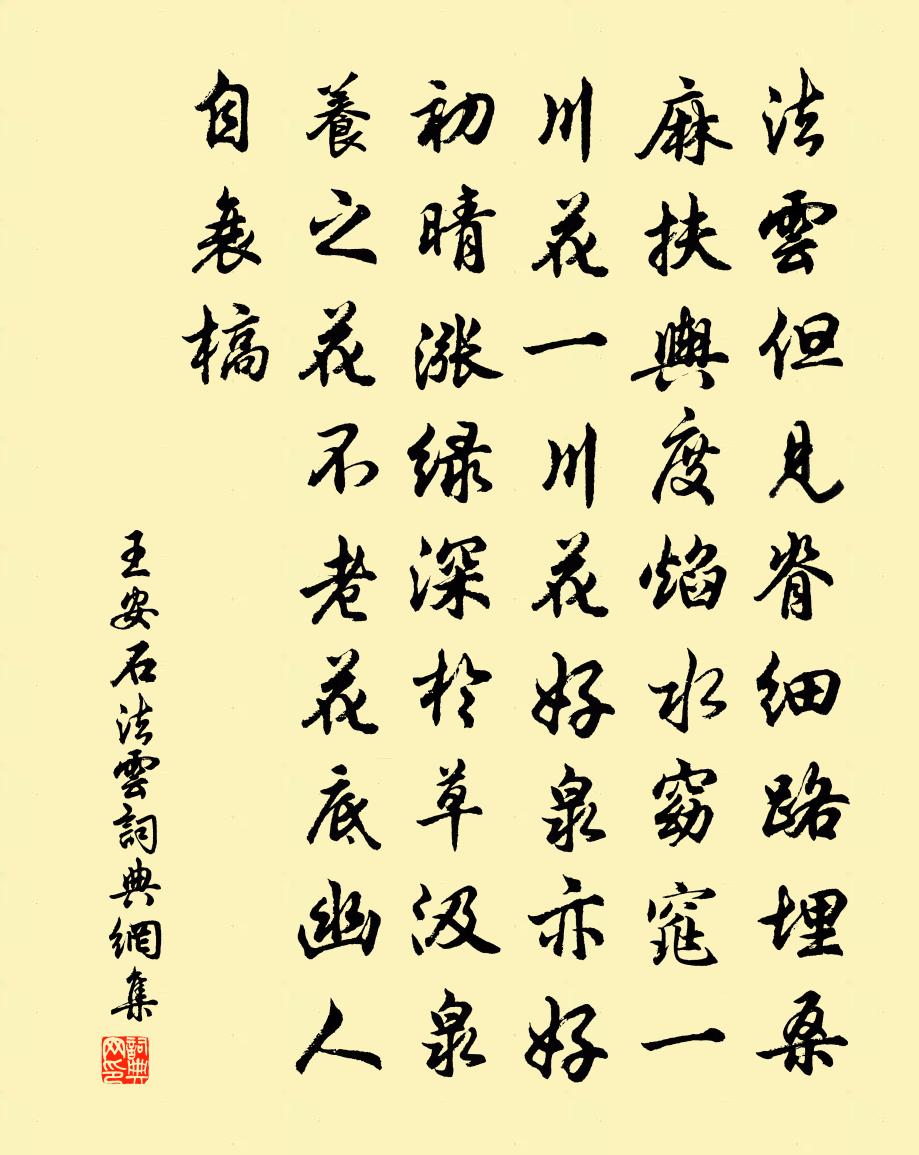 法雲但見脊細路埋桑
麻扶輿度焰水窈窕一
川花一川花好泉亦好
初晴漲緑深於草汲泉
養之花不老花底幽人
自衰槁
王安石法雲詞典網集
詞典網印